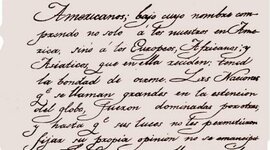 Americanos; bajo cuyo nombre com
prendo no solo á los nacidos en Ame
rica, sinó a los Europeos, Africanos, y
Asiaticos que en ella residen: tened
la bondad de oirme. Las Naciones
q.e se llaman grandes en la extension
del globo, fueron dominadas por otras,
y hasta q.e sus luces no les permitieron
fijar su propia opinion no se emancipa